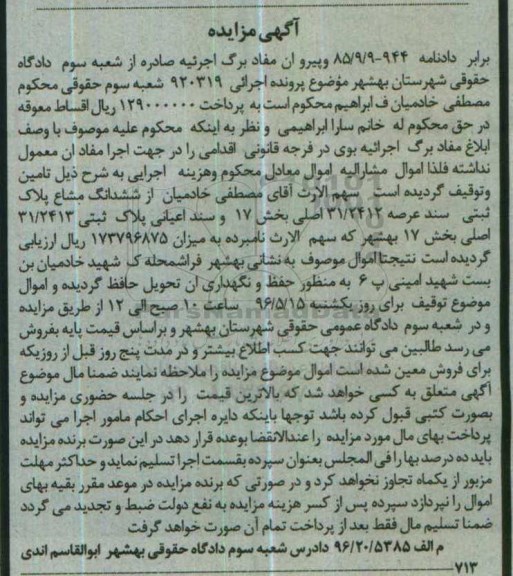 آگهی مزایده
برابر دادنامه ۹۴۴-۸۵/۹/۹ وپیرو ان مفاد برگ اجرئیه صادره از شعبه سوم دادگاه
حقوقی شهرستان بهشهر موضوع پرونده اجرائی ۹۲۰۳۱۹ شعبه سوم حقوقی محکوم
مصطفی خادمیان ف ابراهیم محکوم است به پرداخت ۱۲۹۰۰۰۰۰۰ ریال اقساط معوقه
در حق محکوم له خانم سارا ابراهیمی و نظر به اینکه محکوم علیه موصوف با وصف
ابلاغ مفاد برگ اجرائیه بوی در فرجه قانونی اقدامی را در جهت اجرا مفاد ان معمول
نداشته فلذا اموال مشارالیه اموال معادل محکوم وهزینه اجرایی به شرح ذیل تامین
وتوقیف گردیده است سهم الارث آقای مصطفی خادمیان از ششدانگ مشاع پلاک
ثبتی سند عرصه ۳۱/۲۴۱۲ اصلی بخش ۱۷ و سند اعیانی پلاک ثبتی ۳۱/۲۴۱۳
اصلی بخش ۱۷ بهشهر که سهم الارث نامبرده به میزان ۱۷۳۷۹۶۸۷۵ ریال ارزیابی
گردیده است نتیجتا اموال موصوف به نشانی بهشهر فراشمحله ک شهید خادمیان بن
بست شهید امینی پ ۶ به منظور حفظ و نگهداری ان تحویل حافظ گردیده و اموال
موضوع توقیف برای روز یکشنبه ۹۶/۵/۱۵ ساعت ۱۰ صبح الی ۱۲ از طریق مزایده
و در شعبه سوم دادگاه عمومی حقوقی شهرستان بهشهر و براساس قیمت پایه بفروش
می رسد طالبین می توانند جهت کسب اطلاع بیشتر و در مدت پنج روز قبل از روزیکه
برای فروش معین شده است اموال موضوع مزایده را ملاحظه نمایند ضمنا مال موضوع
آگهی متعلق به کسی خواهد شد که بالاترین قیمت را در جلسه حضوری مزایده و
بصورت کتبی قبول کرده باشد توجها باینکه دایره اجرای احکام مامور اجرا می تواند
پرداخت بهای مال مورد مزایده را عندالانقضا بوعده قرار دهد در این صورت برنده مزایده
باید ده درصد بها را فی المجلس بعنوان سپرده بقسمت اجرا تسلیم نماید و حداکثر مهلت
مزبور از یکماه تجاوز نخواهد کرد و در صورتی که برنده مزایده در موعد مقرر بقیه بهای
اموال را نپردازد سپرده پس از کسر هزینه مزایده به نفع دولت ضبط و تجدید می گردد
ضمنا تسلیم مال فقط بعد از پرداخت تمام آن صورت خواهد گرفت
م الف ۹۶/۲۰/۵۳۸۵ دادرس شعبه سوم دادگاه حقوقی بهشهر ابوالقاسم اندی
۷۱۳